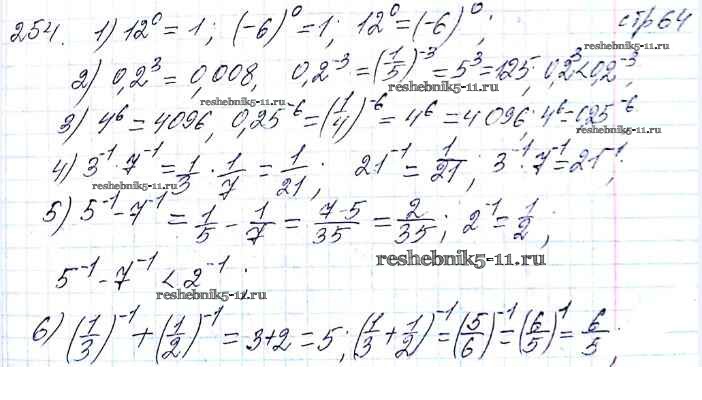 254. 1) 12⁰ = 1; (-6)⁰ = 1; 12⁰ = (-6)⁰; стр 64
reshebnik5-11.ru
2) 0,2³ = 0,008, 0,2⁻³ = (1/5)⁻³ = 5³ = 125; 0,2³ < 0,2⁻³;
reshebnik5-11.ru
reshebnik5-11.ru
3) 4⁶ = 4096, 0,25⁻⁶ = (1/4)⁻⁶ = 4⁶ = 4096; 4⁶ = 0,25⁻⁶
reshebnik5-11.ru
4) 3⁻¹ · 7⁻¹ = 1/3 · 1/7 = 1/21; 21⁻¹ = 1/21; 3⁻¹ · 7⁻¹ = 21⁻¹;
reshebnik5-11.ru
reshebnik5-11.ru
5) 5⁻¹ - 7⁻¹ = 1/5 - 1/7 = 7-5/35 = 2/35; 2⁻¹ = 1/2;
reshebnik5-11.ru
5⁻¹ - 7⁻¹ < 2⁻¹;
reshebnik5-11.ru
6) (1/3)⁻¹ + (1/2)⁻¹ = 3+2 = 5; (1/3 + 1/2)⁻¹ = (5/6)⁻¹ = (6/5)¹ = 6/5;